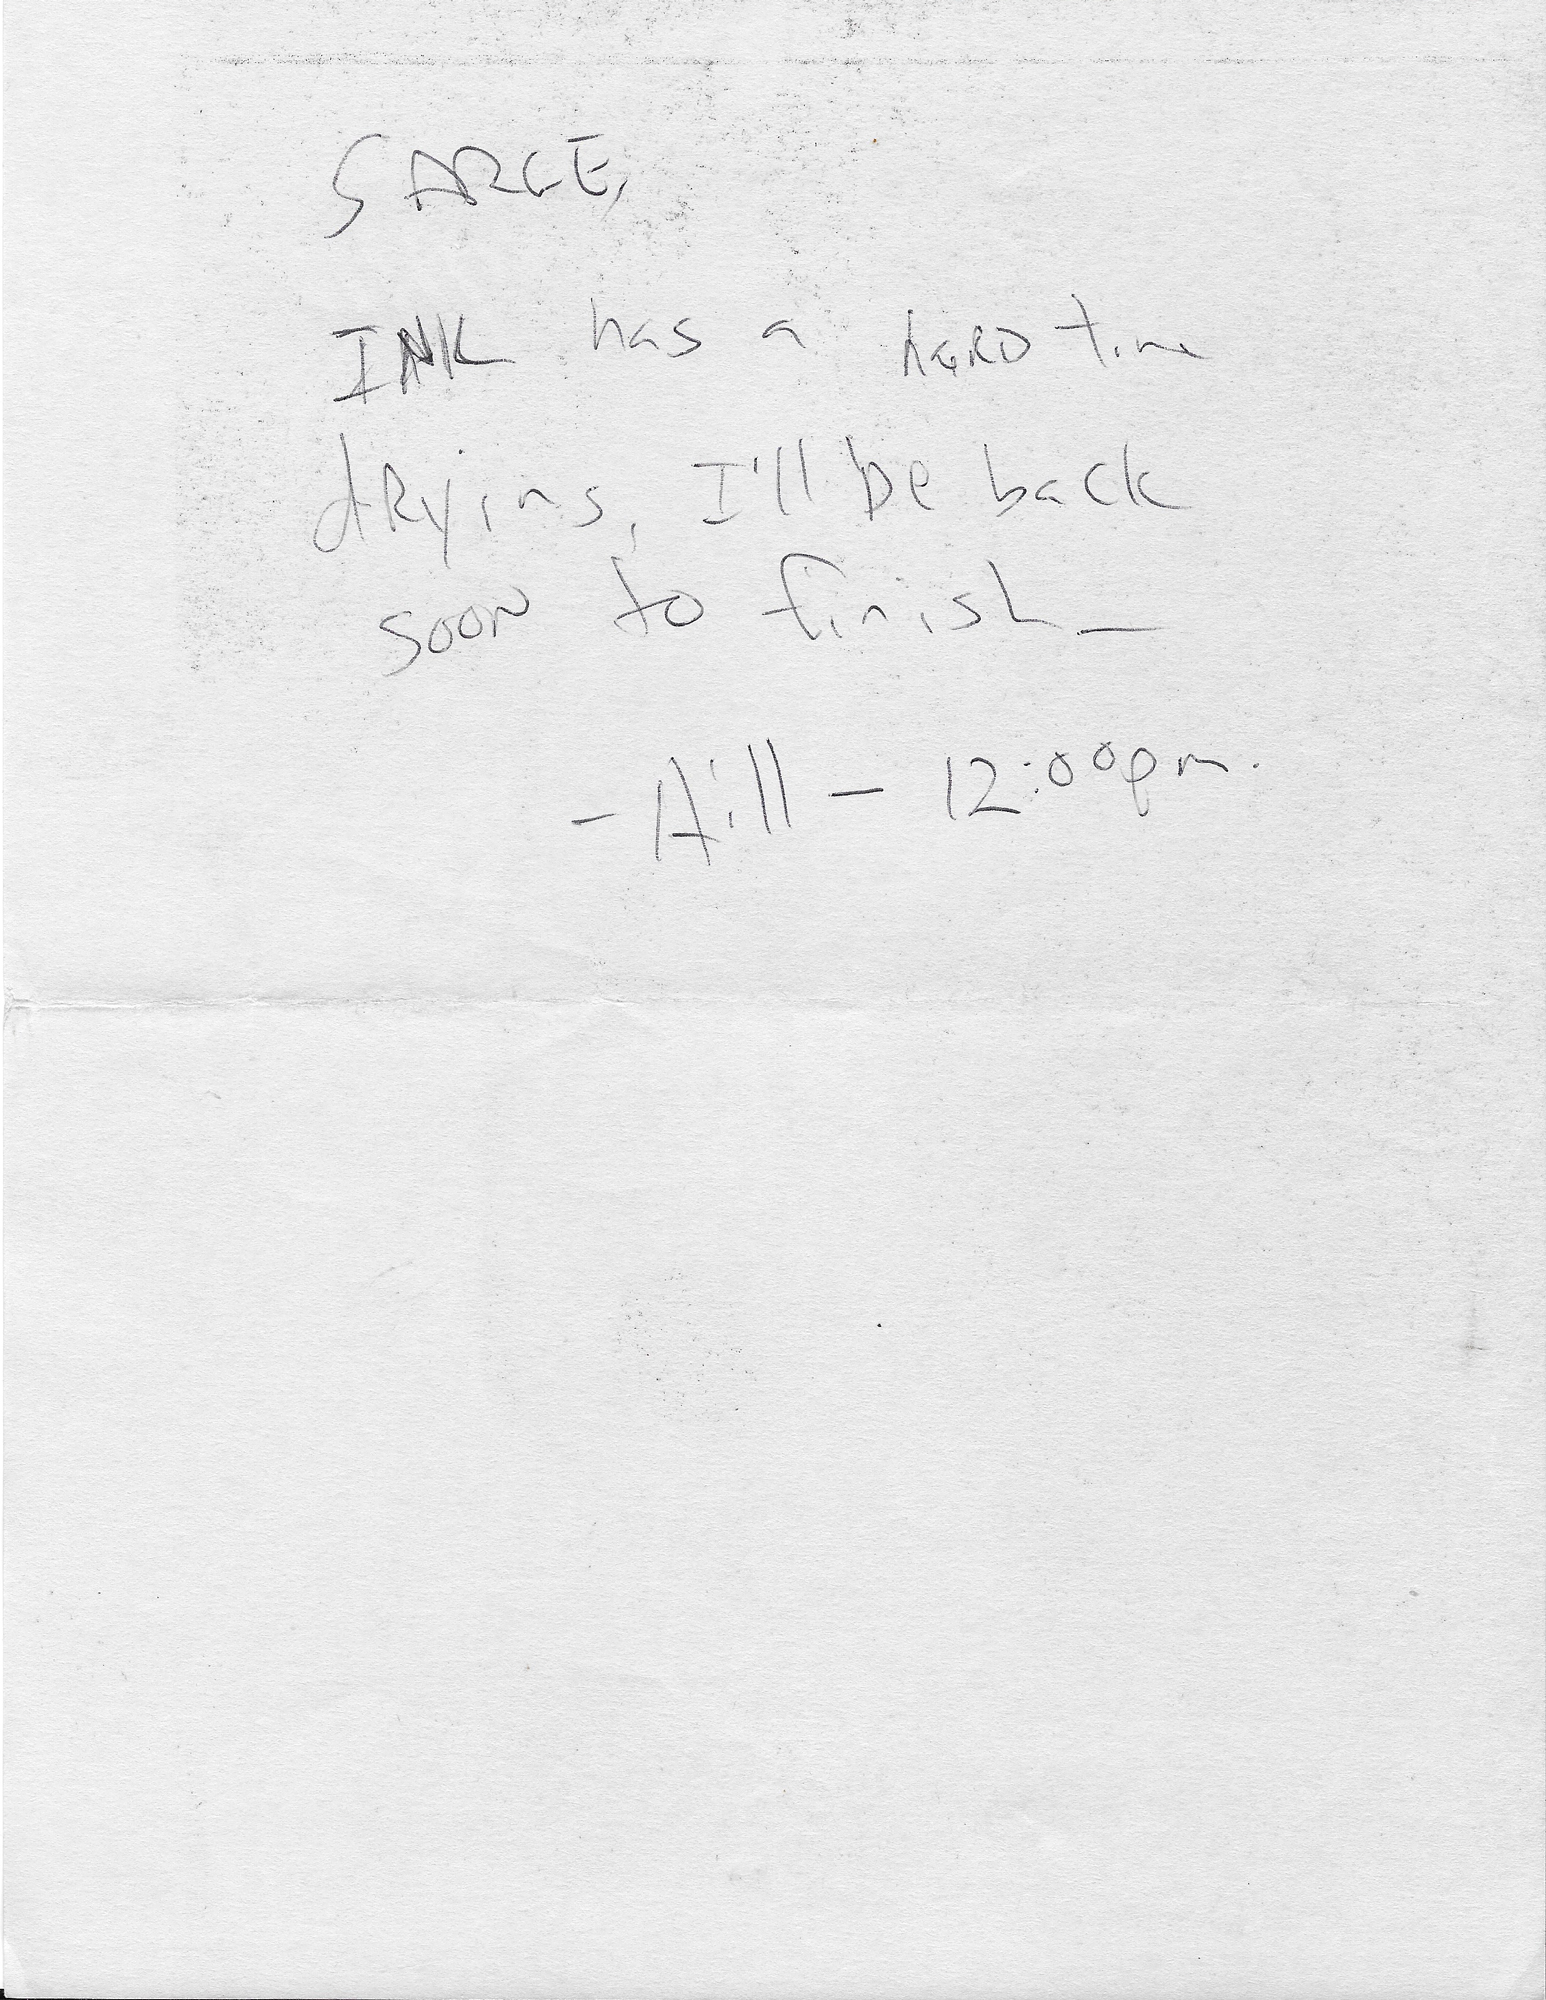 SARGE,
INK has a HARD time
drying, I'll be back
soon to finish_
- Hill - 12:00pm.